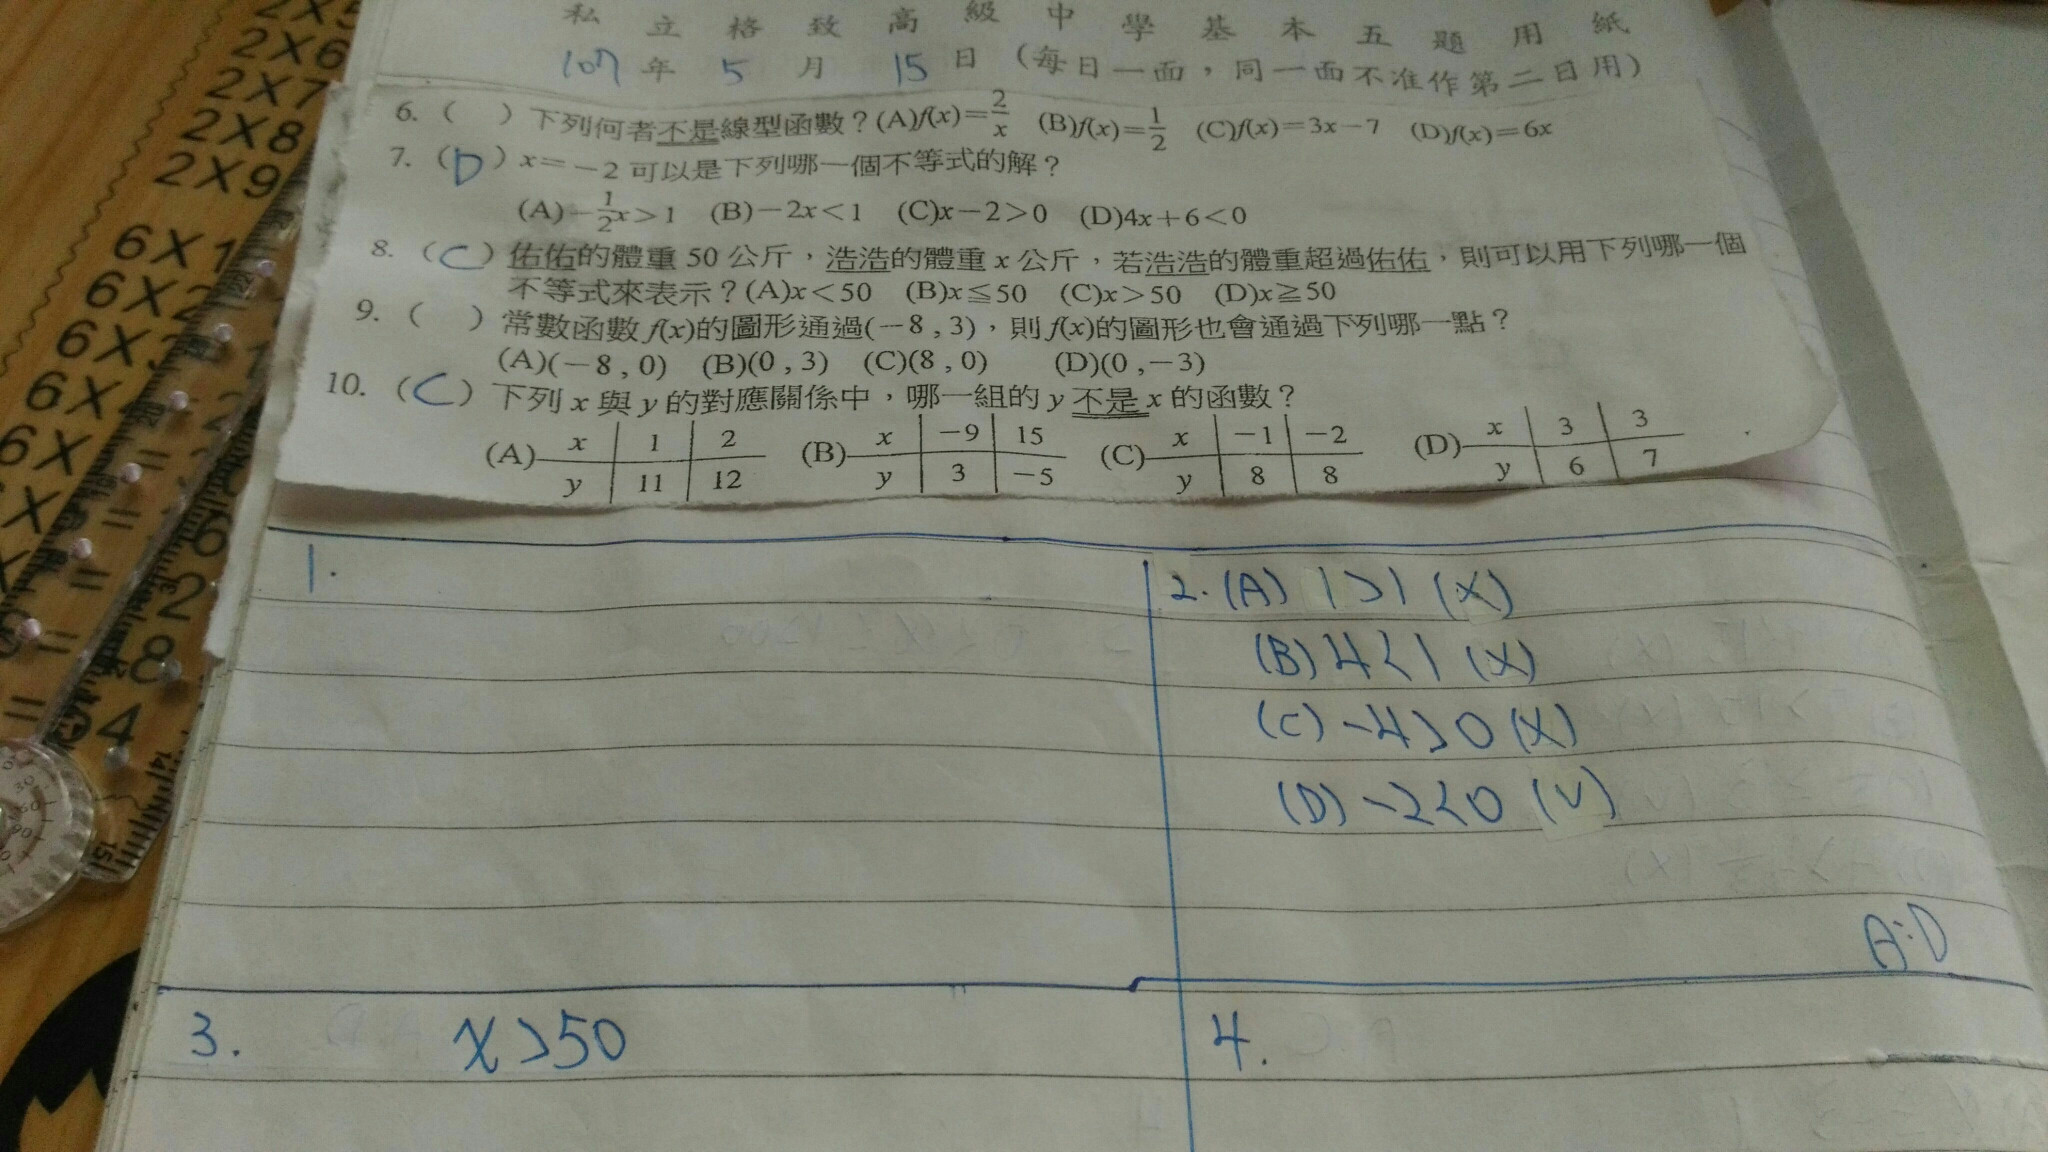 私立格致高級中學基本五題用紙
107年5月15日（每日一面，同一面不准作第二日用）
6. ( ) 下列何者不是線型函數？(A)f(x)=2/x (B)f(x)=1/2 (C)f(x)=3x-7 (D)f(x)=6x
7. (D) x=-2 可以是下列哪一個不等式的解？
(A)-1/2x>1 (B)-2x<1 (C)x-2>0 (D)4x+6<0
8. (C) 佑佑的體重 50 公斤，浩浩的體重 x 公斤，若浩浩的體重超過佑佑，則可以用下列哪一個
不等式來表示？(A)x<50 (B)x≦50 (C)x>50 (D)x≧50
9. ( ) 常數函數 f(x)的圖形通過(-8,3)，則 f(x)的圖形也會通過下列哪一點？
(A)(-8,0) (B)(0,3) (C)(8,0) (D)(0,-3)
10. (C) 下列 x 與 y 的對應關係中，哪一組的 y 不是 x 的函數？
(A) x 1 2 (B) x -9 15 (C) x -1 -2 (D) x 3 3
y 11 12 y 3 -5 y 8 8 y 6 7
1.
2. (A) 1>1 (X)
(B) 4<1 (X)
(C) -4>0 (X)
(D) -2<0 (V)
A:D
3. x>50
4.
2X6
2X7
2X8
2X9
6X1
6X2
6X3